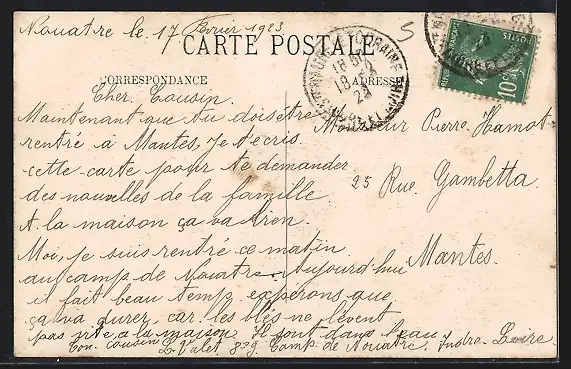 Nouatre le 17 Fevrier 1923
CARTE POSTALE
CORRESPONDANCE
ADRESSE
Cher Cousin
Maintenant que tu dois être
rentré a Mantes, Je t'ecris
cette carte pour te demander
des nouvelles de la famille
A la maison ça va bien
Moi, je suis rentré ce matin
au camp de Nouatre. Aujourd'hui
il fait beau temp esperons que
ça va durer, car les blés ne lèvent
pas a la maison Il sont dans l'eau
Ton cousin L. Valet Camp de Nouatre. Indre-Loire
Monsieur Pierre Hamot
25 Rue Gambetta
Mantes.
POSTES
10